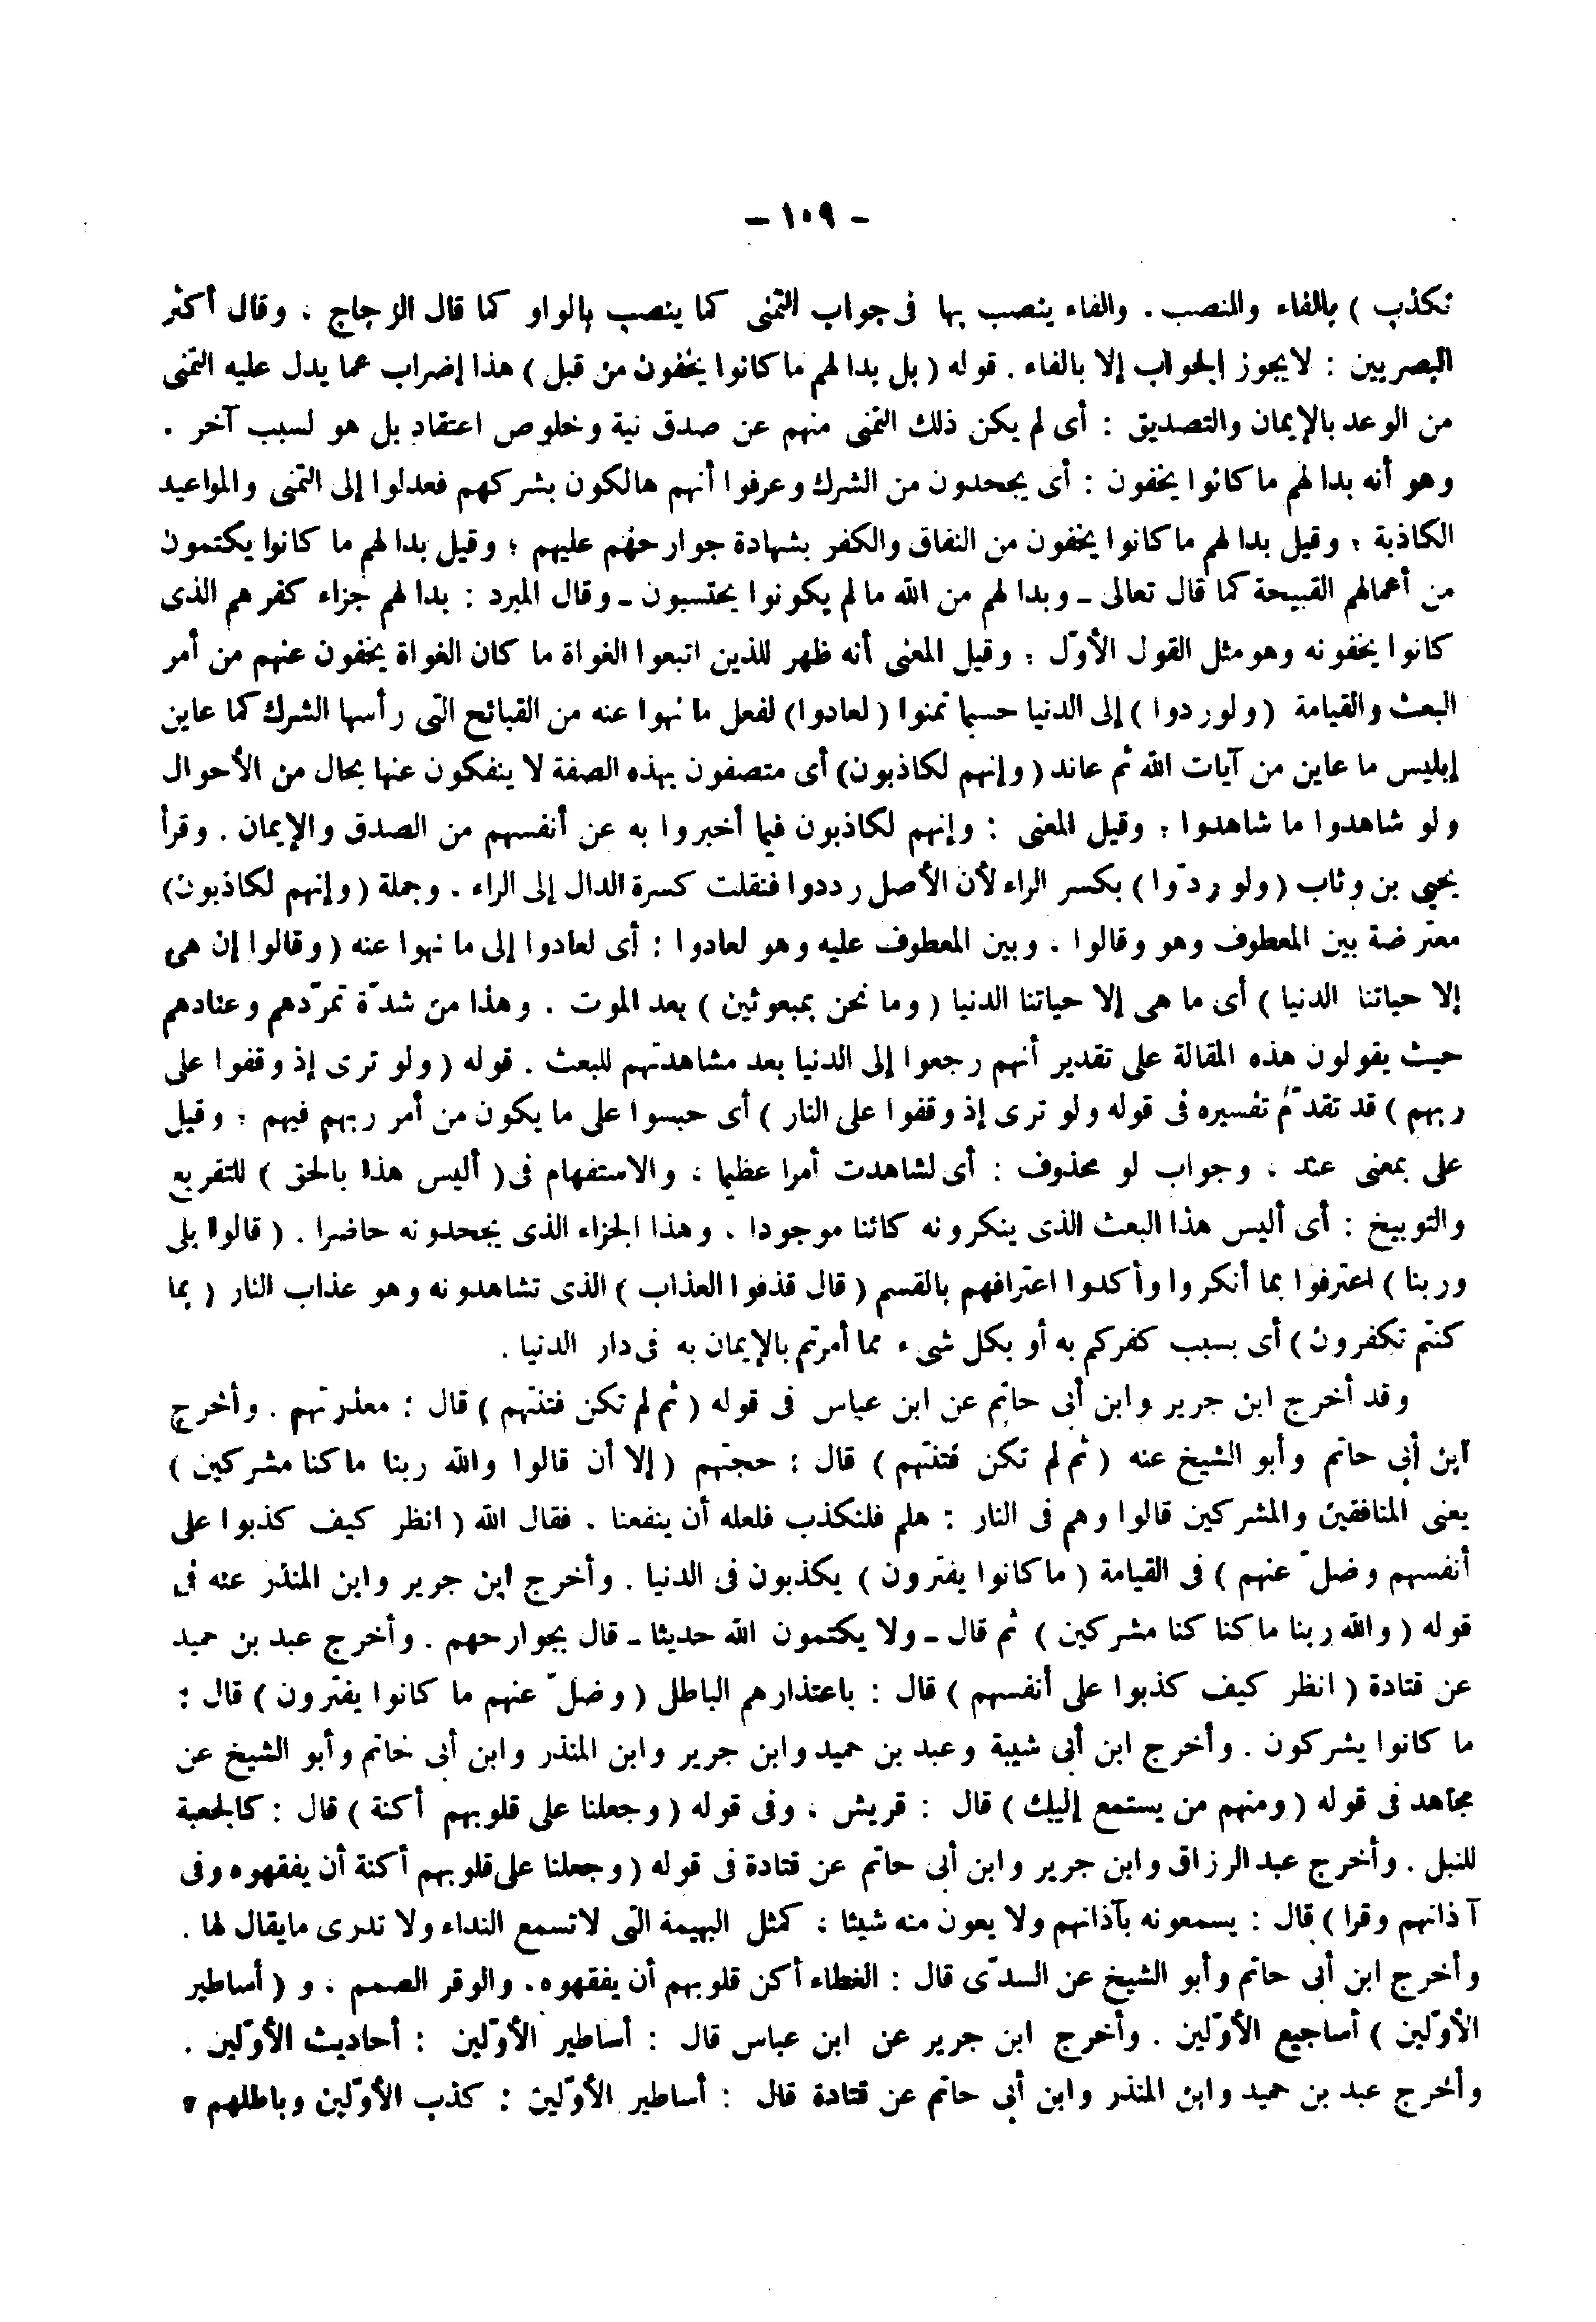 - ١٠٩ -
نكذب ) بالفاء والنصب . والفاء ينصب بها فى جواب التمنى كما ينصب بالواو كما قال الزجاج ، وقال أكثر
البصريين : لايجوز الجواب إلا بالفاء . قوله ( بل بدا لهم ما كانوا يخفون من قبل ) هذا إضراب عما يدل عليه التمنى
من الوعد بالإيمان والتصديق : أى لم يكن ذلك التمنى منهم عن صدق نية وخلوص اعتقاد بل هو لسبب آخر .
وهو أنه بدا لهم ما كانوا يخفون : أى يجحدون من الشرك وعرفوا أنهم هالكون بشركهم فعدلوا إلى التمنى والمواعيد
الكاذبة ؛ وقيل بدا لهم ما كانوا يخفون من النفاق والكفر بشهادة جوارحهم عليهم ؛ وقيل بدا لهم ما كانوا يكتمون
من أعمالهم القبيحة كما قال تعالى ـ وبدا لهم من الله ما لم يكونوا يحتسبون ـ وقال المبرد : بدا لهم جزاء كفرهم الذى
كانوا يخفونه وهو مثل القول الأوّل ؛ وقيل المعنى أنه ظهر للذين اتبعوا الغواة ما كان الغواة يخفون عنهم من أمر
البعث والقيامة ( ولو ردوا ) إلى الدنيا حسبما تمنوا ( لعادوا ) لفعل ما نهوا عنه من القبائح التى رأسها الشرك كما عاين
إبليس ما عاين من آيات الله ثم عاند ( وإنهم لكاذبون ) أى متصفون بهذه الصفة لا ينفكون عنها بحال من الأحوال
ولو شاهدوا ما شاهدوا ؛ وقيل المعنى : وإنهم لكاذبون فيما أخبروا به عن أنفسهم من الصدق والإيمان . وقرأ
يحيى بن وثاب ( ولو ردّوا ) بكسر الراء لأن الأصل رددوا فنقلت كسرة الدال إلى الراء . وجملة ( وإنهم لكاذبون )
معترضة بين المعطوف وهو وقالوا ، وبين المعطوف عليه وهو لعادوا : أى لعادوا إلى ما نهوا عنه ( وقالوا إن هى
إلا حياتنا الدنيا ) أى ما هى إلا حياتنا الدنيا ( وما نحن بمبعوثين ) بعد الموت . وهذا من شدّة تمرّدهم وعنادهم
حيث يقولون هذه المقالة على تقدير أنهم رجعوا إلى الدنيا بعد مشاهدتهم للبعث . قوله ( ولو ترى إذ وقفوا على
ربهم ) قد تقدّم تفسيره فى قوله ولو ترى إذ وقفوا على النار ) أى حبسوا على ما يكون من أمر ربهم فيهم ؛ وقيل
على بمعنى عند ، وجواب لو محذوف : أى لشاهدت أمرا عظيما ، والاستفهام فى ( أليس هذا بالحق ) للتقريع
والتوبيخ : أى أليس هذا البعث الذى ينكرونه كائنا موجودا ، وهذا الجزاء الذى يجحدونه حاضرا . ( قالوا بلى
وربنا ) اعترفوا بما أنكروا وأكدوا اعترافهم بالقسم ( قال قذفوا العذاب ) الذى تشاهدونه وهو عذاب النار ( بما
كنتم تكفرون ) أى بسبب كفركم به أو بكل شىء مما أمرتم بالإيمان به فى دار الدنيا .
وقد أخرج ابن جرير وابن أبى حاتم عن ابن عباس فى قوله ( ثم لم تكن فتنتهم ) قال : معذرتهم . وأخرج
ابن أبى حاتم وأبو الشيخ عنه ( ثم لم تكن فتنتهم ) قال : حجتهم ( إلا أن قالوا والله ربنا ما كنا مشركين )
يعنى المنافقين والمشركين قالوا وهم فى النار : هلم فلنكذب فلعله أن ينفعنا . فقال الله ( انظر كيف كذبوا على
أنفسهم وضلّ عنهم ) فى القيامة ( ما كانوا يفترون ) يكذبون فى الدنيا . وأخرج ابن جرير وابن المنذر عنه فى
قوله ( والله ربنا ما كنا كنا مشركين ) ثم قال ـ ولا يكتمون الله حديثا ـ قال بجوارحهم . وأخرج عبد بن حميد
عن قتادة ( انظر كيف كذبوا على أنفسهم ) قال : باعتذارهم الباطل ( وضلّ عنهم ما كانوا يفترون ) قال :
ما كانوا يشركون . وأخرج ابن أبى شيبة وعبد بن حميد وابن جرير وابن المنذر وابن أبى حاتم وأبو الشيخ عن
مجاهد فى قوله ( ومنهم من يستمع إليك ) قال : قريش ، وفى قوله ( وجعلنا على قلوبهم أكنة ) قال : كالجعبة
للنبل . وأخرج عبد الرزاق وابن جرير وابن أبى حاتم عن قتادة فى قوله ( وجعلنا على قلوبهم أكنة أن يفقهوه وفى
آذانهم وقرا ) قال : يسمعونه بآذانهم ولا يعون منه شيئا ، كمثل البهيمة التى لاتسمع النداء ولا تدرى مايقال لها .
وأخرج ابن أبى حاتم وأبو الشيخ عن السدّى قال : الغطاء أكن قلوبهم أن يفقهوه ، والوقر الصمم ، و ( أساطير
الأوّلين ) أساجيع الأوّلين . وأخرج ابن جرير عن ابن عباس قال : أساطير الأوّلين : أحاديث الأوّلين .
وأخرج عبد بن حميد وابن المنذر وابن أبى حاتم عن قتادة قال : أساطير الأوّلين : كذب الأوّلين وباطلهم ٥